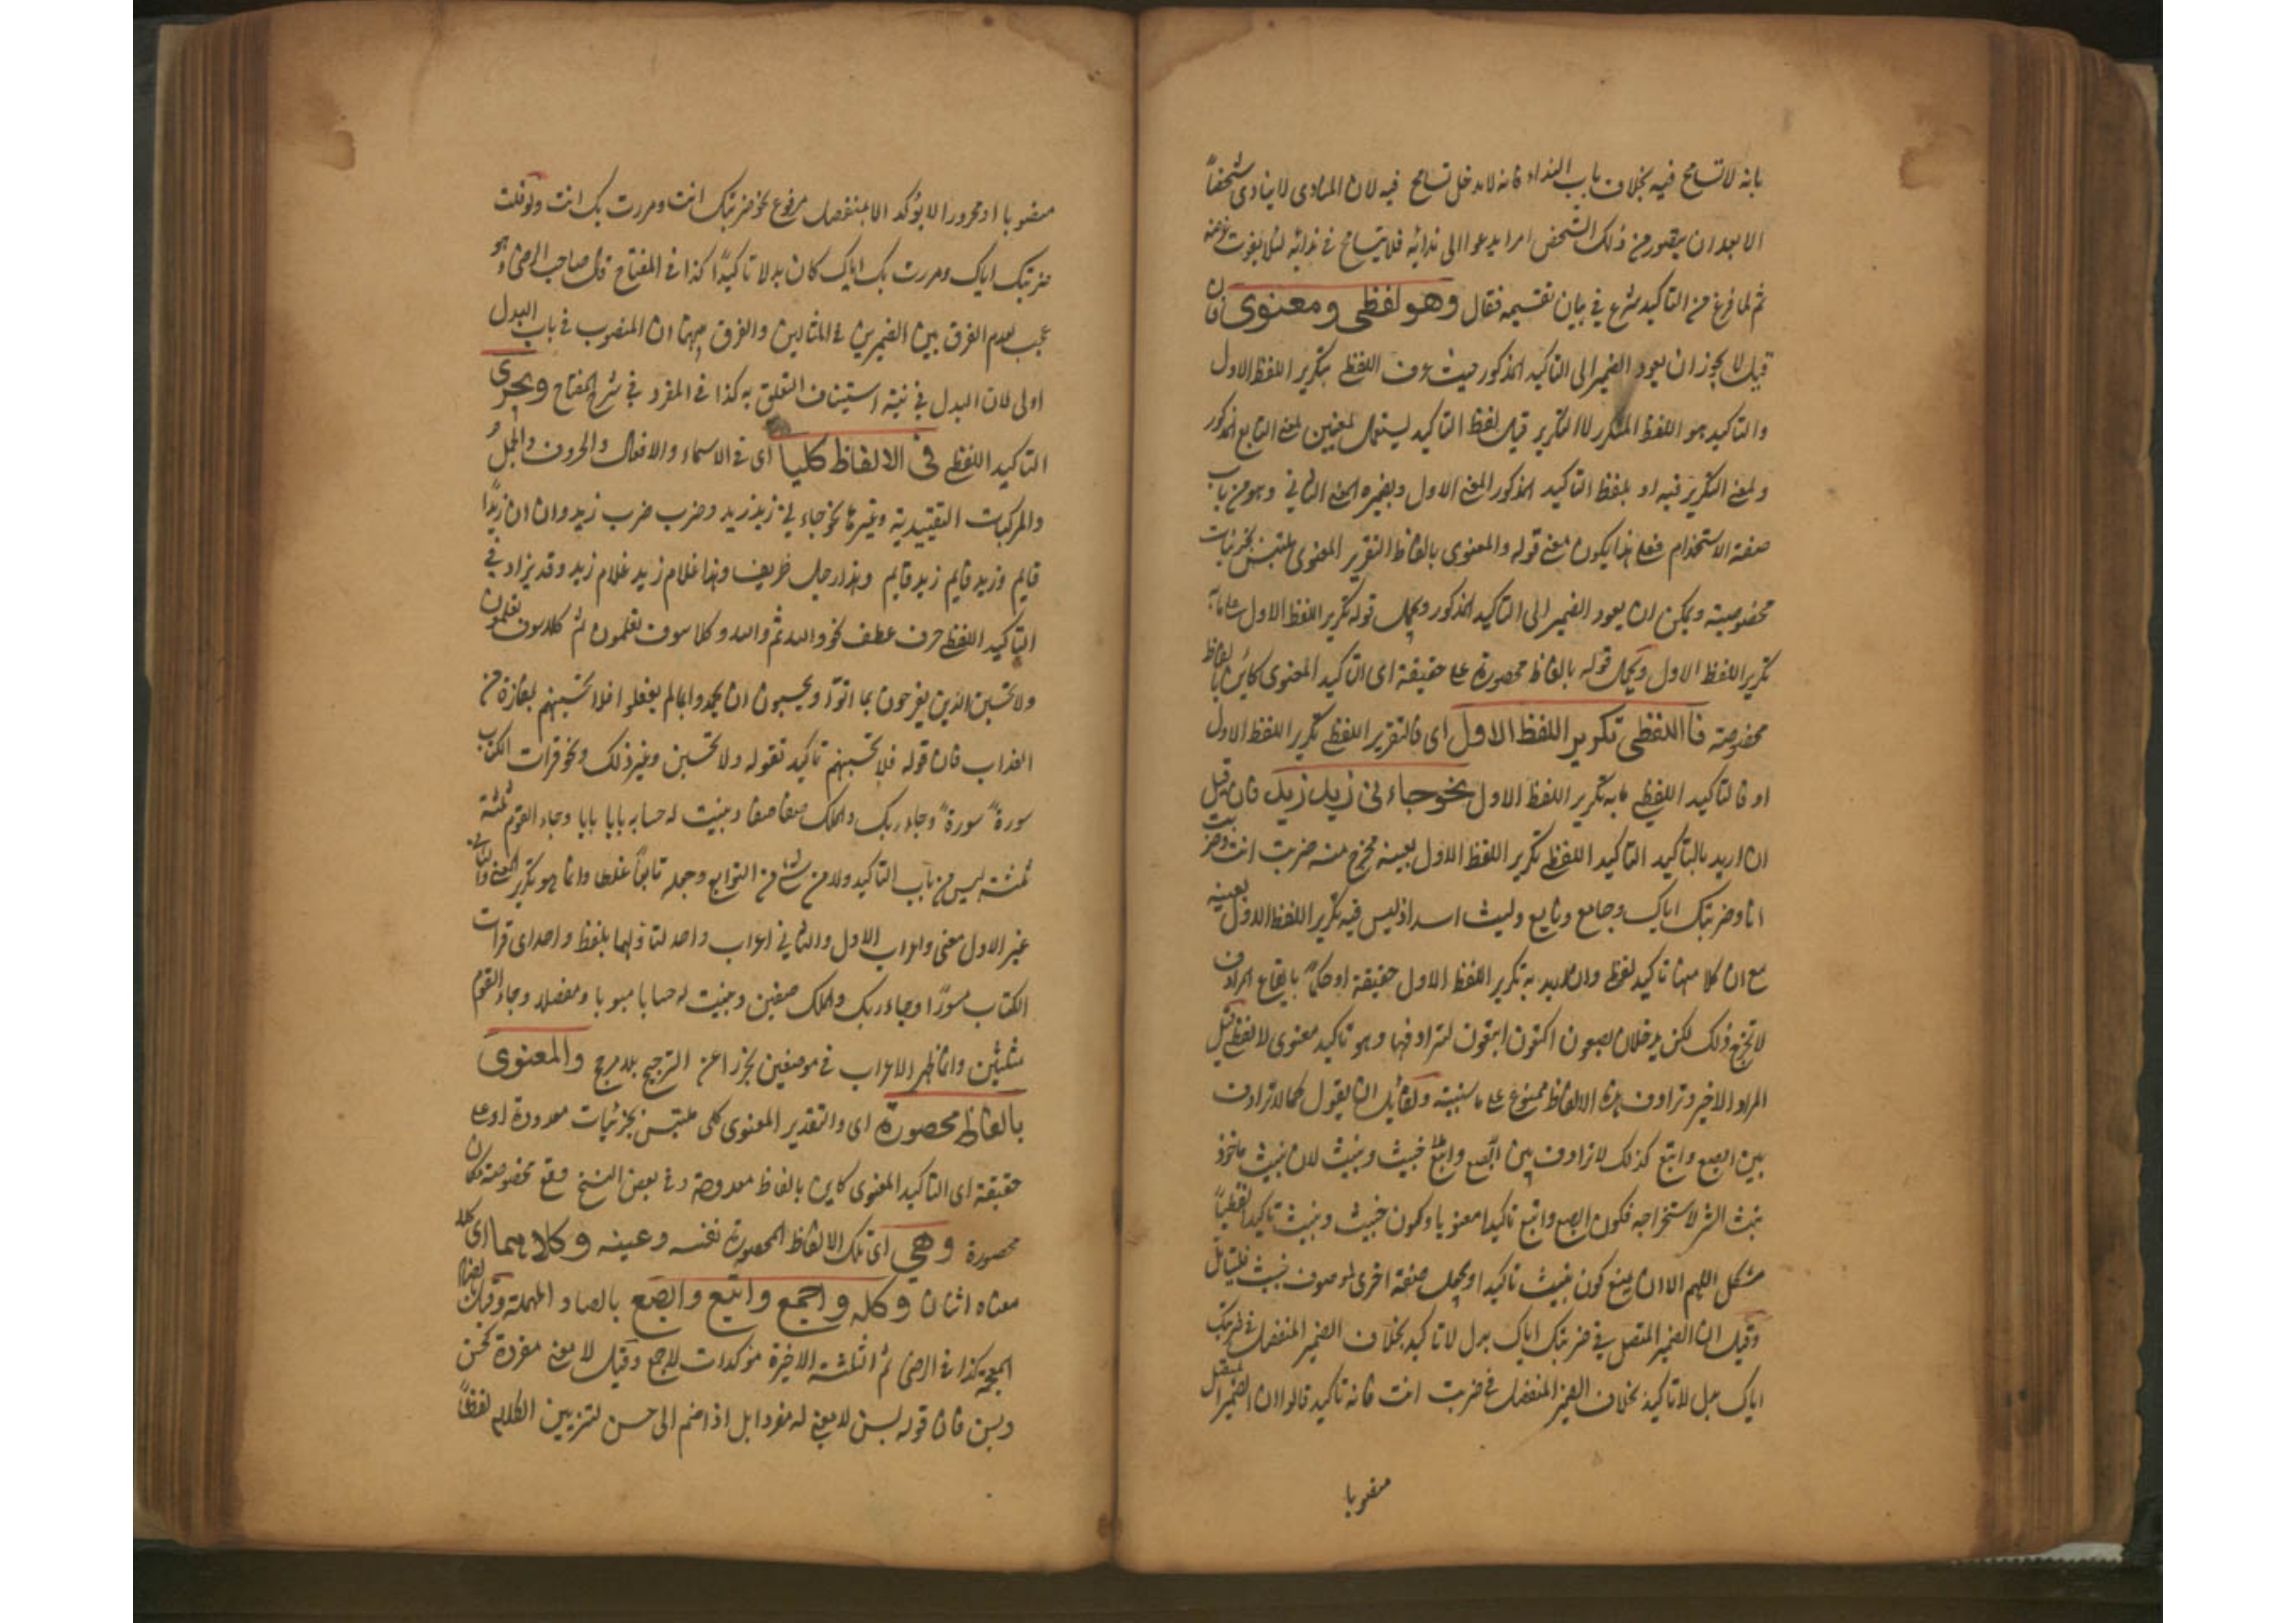 بانه لا تسامح فيه بخلاف باب النداء فانه لا يدخل تسامح فيه لان المنادى لا ينادى شخصاً
الا بعد ان يتصور من ذلك الشخص امرا يدعو الى ندائه فلا يتسامح في ندائه لئلا يفوت غرضه
ثم لما فرغ من التاكيد شرع في بيان تقسيمه فقال وهو لفظى ومعنوى فان
قيل لا يجوز ان يعود الضمير الى التاكيد المذكور حيث عرف اللفظى بتكرير اللفظ الاول
والتاكيد هو اللفظ المكرر لا التكرير قيل لفظ التاكيد يستعمل لمعنيين لمعنى التابع المذكور
ولمعنى التكرير فيه اريد بلفظ التاكيد المذكور المعنى الاول وبضميره المعنى الثاني وهو من باب
صنعة الاستخدام فعلى هذا يكون معنى قوله والمعنوى بالفاظ التقرير المعنوى ملتبس بجزئيات
مخصوصة ويمكن ان يعود الضمير الى التاكيد المذكور ويحمل قوله تكرير اللفظ الاول على ما به
تكرير اللفظ الاول ويحمل قوله بالفاظ محصورة على حقيقة اى التاكيد المعنوى كائن بالفاظ
مخصوصة فاللفظى تكرير اللفظ الاول اى فالتقرير اللفظى تكرير اللفظ الاول
او فالتاكيد اللفظى ما به تكرير اللفظ الاول نحو جاءنى زيد زيد فان قيل
ان اريد بالتاكيد التاكيد اللفظى تكرير اللفظ الاول بعينه يخرج منه ضربت انت وضربت
انا وضربتك اياك وجامع وتابع وليث اسد اذ ليس فيه تكرير اللفظ الاول بعينه
مع ان كلا منها تاكيد لفظى وان اريد به تكرير اللفظ الاول حقيقة او حكماً بايقاع المرادف
لا يخرج ذلك لكن يدخل ابصعون اكتعون ابتعون لترادفها وهو تاكيد معنوى لا لفظى قيل
المراد الاخير وترادف هذه الالفاظ ممنوع على ما سنبينه ولقائل ان يقول كما لا ترادف
بين ابصع وابتع كذلك لا ترادف بين ابصع وابتع خبيث ونبيث لان نبيث ماخوذ
نبث الشر لاستخراجه فكون ابصع وابتع تاكيدا معنويا وكون خبيث ونبيث تاكيدا لفظياً
مشكل اللهم الا ان يمنع كون نبيث تاكيدا ويجعل صفة اخرى لموصوف خبيث فليتامل
وقيل ان الضمير المتصل في ضربتك اياك بدل لا تاكيد بخلاف الضمير المنفصل في ضربتك
اياك بدل لا تاكيد بخلاف الضمير المنفصل في ضربت انت فانه تاكيد قالوا ان الضمير المتصل
منصوبا
منصوبا او مجرورا لا يؤكد الا بمنفصل مرفوع نحو ضربتك انت ومررت بك انت ولو قلت
ضربتك اياك ومررت بك اياك كان بدلا تاكيدا كذا في المفتاح قال صاحب الرضى وهو
عجيب لعدم الفرق بين الضميرين في المثالين والفرق بينهما ان المنصوب في باب البدل
اولى لان البدل في نية استيناف التعلق به كذا في المفرد في شرح المفتاح ويجرى
التاكيد اللفظى فى الالفاظ كلها اى في الاسماء والافعال والحروف والجمل و
والمركبات التقييدية وغيرها نحو جاءنى زيد زيد وضرب ضرب زيد وان ان زيداً
قايم وزيد قايم زيد قايم وهذا رجل ظريف وهذا غلام زيد غلام زيد وقد يزاد في
التاكيد اللفظى حرف عطف نحو والله ثم والله وكلا سوف تعلمون ثم كلا سوف تعلمون
ولا تحسبن الذين يفرحون بما اتوا ويحبون ان يحمدوا بما لم يفعلوا فلا تحسبنهم بمفازة من
العذاب فان قوله فلا تحسبنهم تاكيد لقوله ولا تحسبن وغير ذلك ونحو قرات الكتاب
سورةً سورةً وجاء ربك والملك صفا صفا وبينت له حسابه بابا بابا وجاء القوم ثلثة
ثلثة ليس من باب التاكيد ولا من شئ من التوابع وجعله تابعاً غلط وانما هو تكرير المعنى والثاني
غير الاول معنى واعراب الاول والثاني اعراب واحد لتاولهما بلفظ واحد اى قرات
الكتاب مسورًا وجاء ربك والملك صفين وبينت له حسابا مبوبا ومفصلا وجاء القوم
مثلثين وانما ظهر الاعراب في موضعين تحرزا عن الترجيح بلا مرجح والمعنوى
بالفاظ محصورة اى والتقرير المعنوى كلى ملتبس بجزئيات معدودة او على
حقيقة اى التاكيد المعنوى كاين بالفاظ معدودة وفي بعض النسخ وقع مخصوصة مكان
محصورة وهى اى تلك الالفاظ المحصورة نفسه وعينه وكلاهما اى كلا
معناه اثنان وكله واجمع واتبع وابصع بالصاد المهملة وقيل بالضاد
المعجمة كذا في الرضى ثم الثلثة الاخيرة مؤكدات لاجمع وقيل لا معنى مفردة كحسن
وبسن فان قوله بسن لا معنى له مفردا بل اذا ضم الى حسن لتزيين الكلام لفظاً